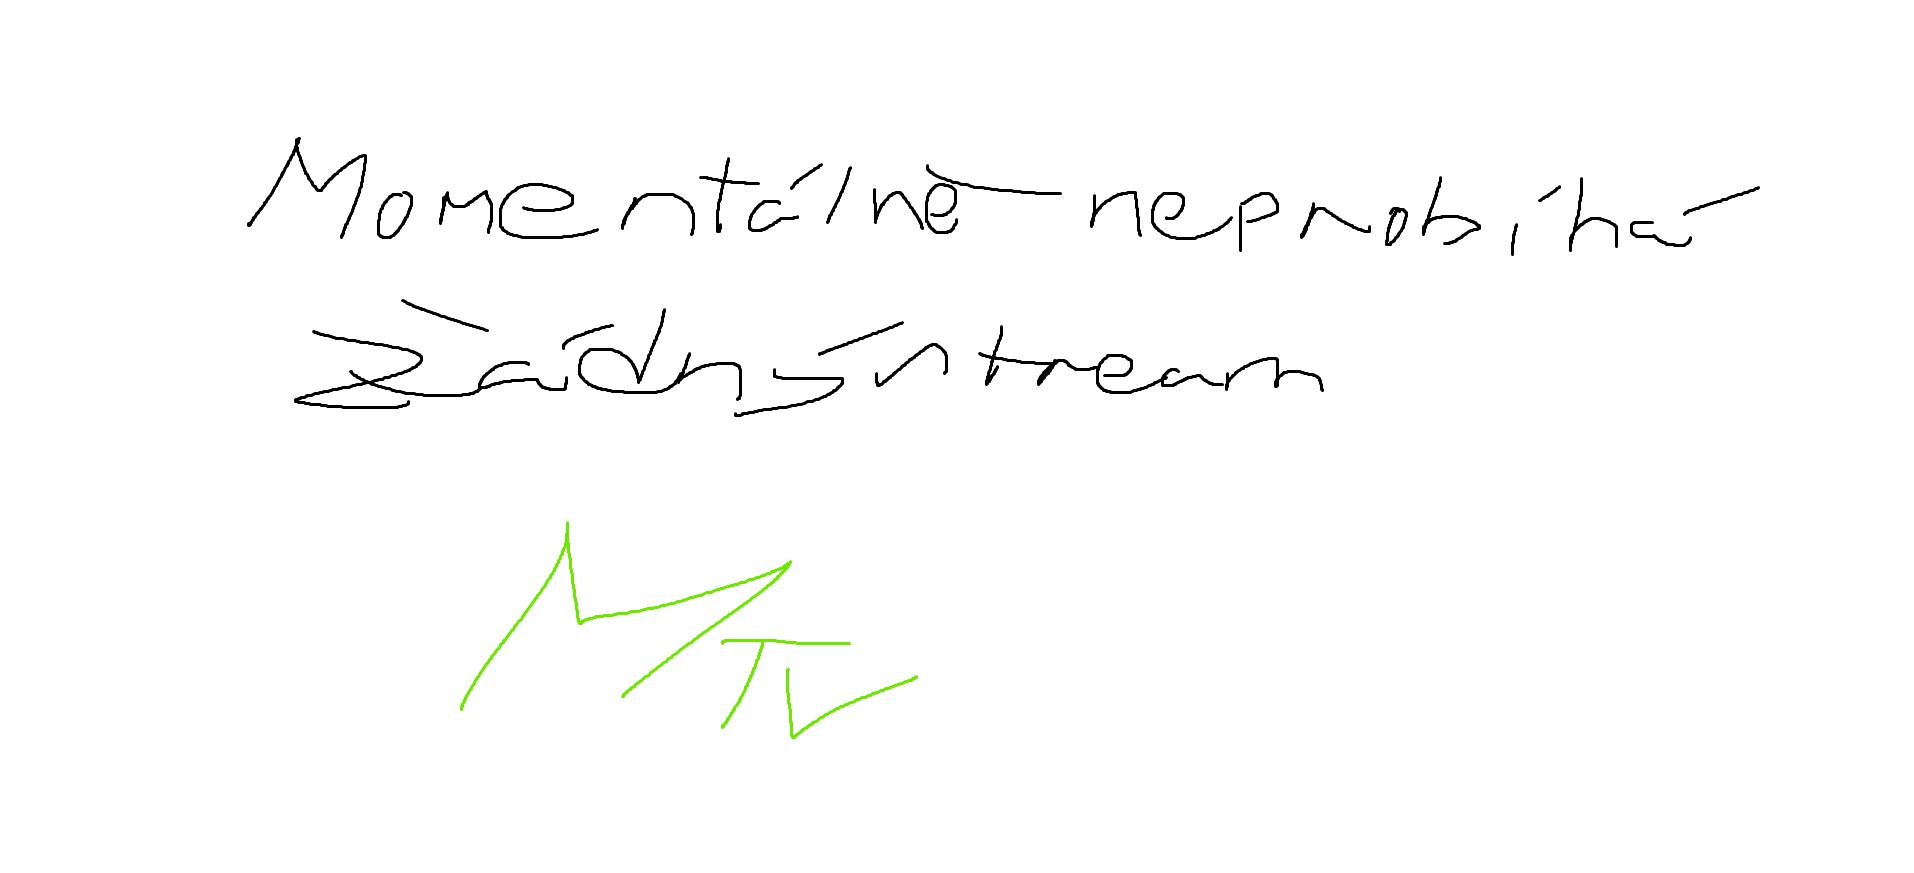 Momentálně neprobíhá
žádný stream